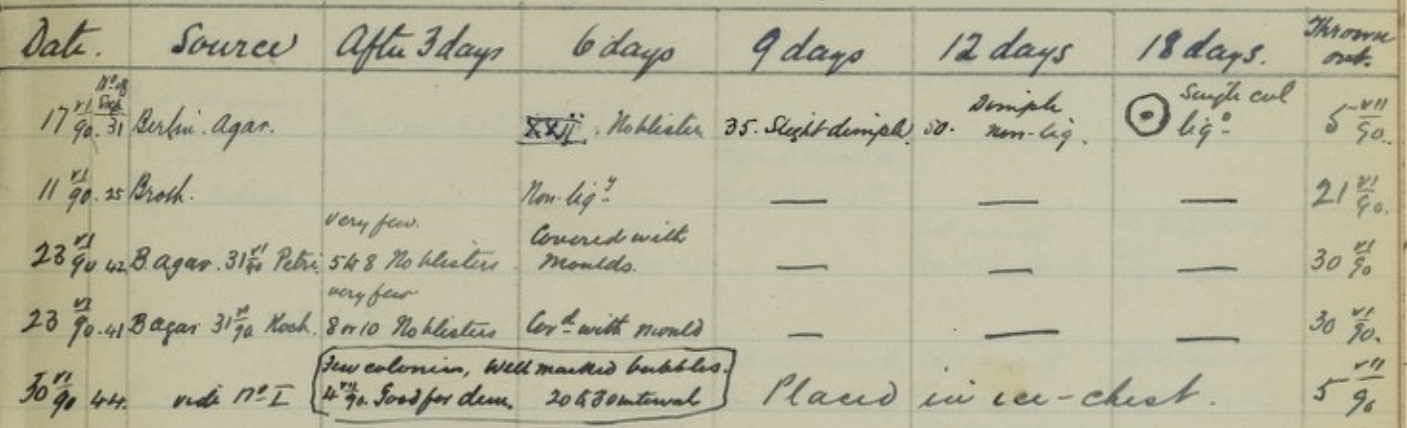 Date. Source After 3 days 6 days 9 days 12 days 18 days. Thrown out.
Nº of Exp
17 VI/90. 31 Berlin. Agar. XXII No blister 35. Slight dimple. 50. Dimple non-liq. Single col liqº 5 VII/90.
11 VI/90. 25 Broth. Non-liqʸ — — — 21 VI/90.
23 VI/90 42 B. agar. 31 VI/90 Petri very few. 5 to 8 No blisters Covered with moulds. — — — 30 VI/90
23 VI/90. 41 B agar 31 VI/90 Koch. very few 8 or 10 No blisters Covᵈ with mould — — — 30 VI/90.
30 VI/90 44. vide Nº I Few colonies, Well marked bubbles. Placed in ice-chest. 5 VII/90
4 VII/90. Good for dem. 20 to 30 interval